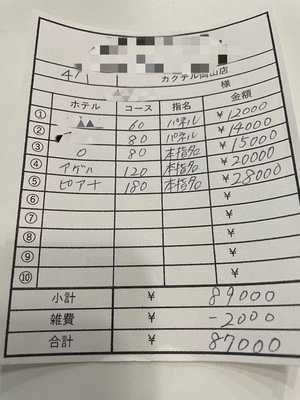 カクテル岡山店
様
ホテル コース 指名 金額
① 60 パネル ¥12000
② 80 パネル ¥14000
③ O 80 本指名 ¥15000
④ アゲハ 120 本指名 ¥20000
⑤ ピアナ 180 本指名 ¥28000
⑥
⑦
⑧
⑨
⑩
小計 ¥ 89000
雑費 ¥ -2000
合計 ¥ 87000